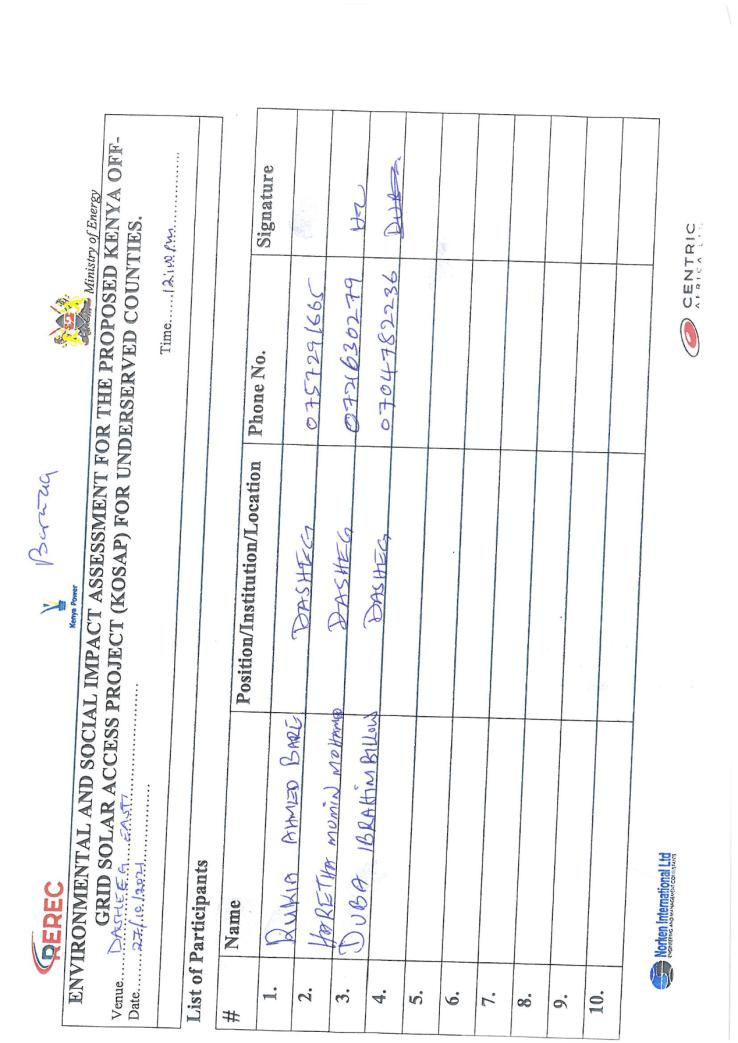 REREC
Kenya Power
Baraza
Ministry of Energy
ENVIRONMENTAL AND SOCIAL IMPACT ASSESSMENT FOR THE PROPOSED KENYA OFF-
GRID SOLAR ACCESS PROJECT (KOSAP) FOR UNDERSERVED COUNTIES.
Venue......DASHEEG EAST
Date......27/10/2021
Time......12:00 P.M.
List of Participants
# Name Position/Institution/Location Phone No. Signature
1. RUKIA AHMED BARE DASHEG 0757291665
2. HARETHA MUMIN MOHAMED DASHEG 0721630279
3. DUBA IBRAHIM BILLOW DASHEG 0704782236 DUBA
4.
5.
6.
7.
8.
9.
10.
Norken International Ltd
ENGINEERING AND MANAGEMENT CONSULTANTS
CENTRIC
AFRICA LTD.